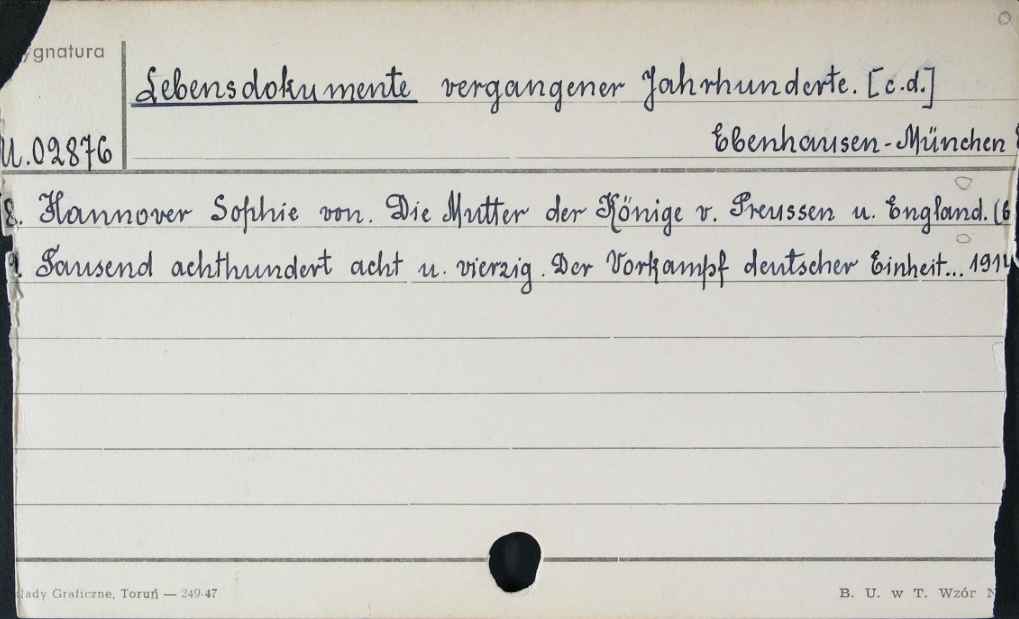 ygnatura
Lebensdokumente vergangener Jahrhunderte. [c.d.]
U.02876
Ebenhausen-München
8. Hannover Sophie von. Die Mutter der Könige v. Preussen u. England. (6
9. Tausend achthundert acht u. vierzig. Der Vorkampf deutscher Einheit... 1914
łady Graficzne, Toruń — 249-47
B. U. w T. Wzór N